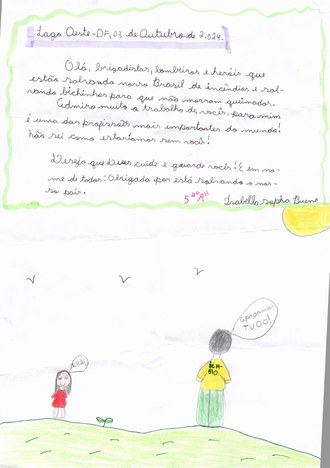 Lago Oeste-DF, 03 de Outubro de 2.024.
Olá, brigadistas, bombeiros e heróis que
estão salvando nosso Brasil de incêndios e sal-
vando bichinhos para que não morram queimados.
Admiro muito o trabalho de vocês, para mim
é uma das profissões mais importantes do mundo.
Não sei como estaríamos sem vocês!
Desejo que Deus cuide e guarde vocês! E em no-
me de todos: Obrigada por está salvando o nos-
so país.
5º "A"
Isabella Bueno
Apagamos
TUDO!
ICM
BIO